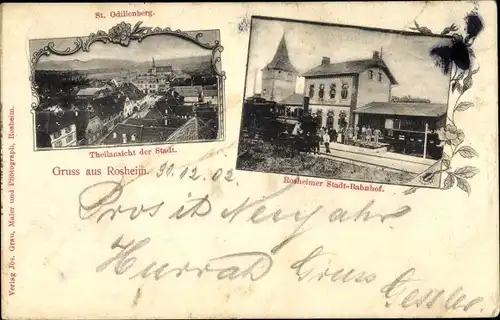 St. Odilienberg.
Theilansicht der Stadt.
Gruss aus Rosheim. 30.12.02
Rosheimer Stadt-Bahnhof.
Prosit Neujahr
Hurrah Gruss
Verlag Jos. Grau, Maler und Photograph, Rosheim.